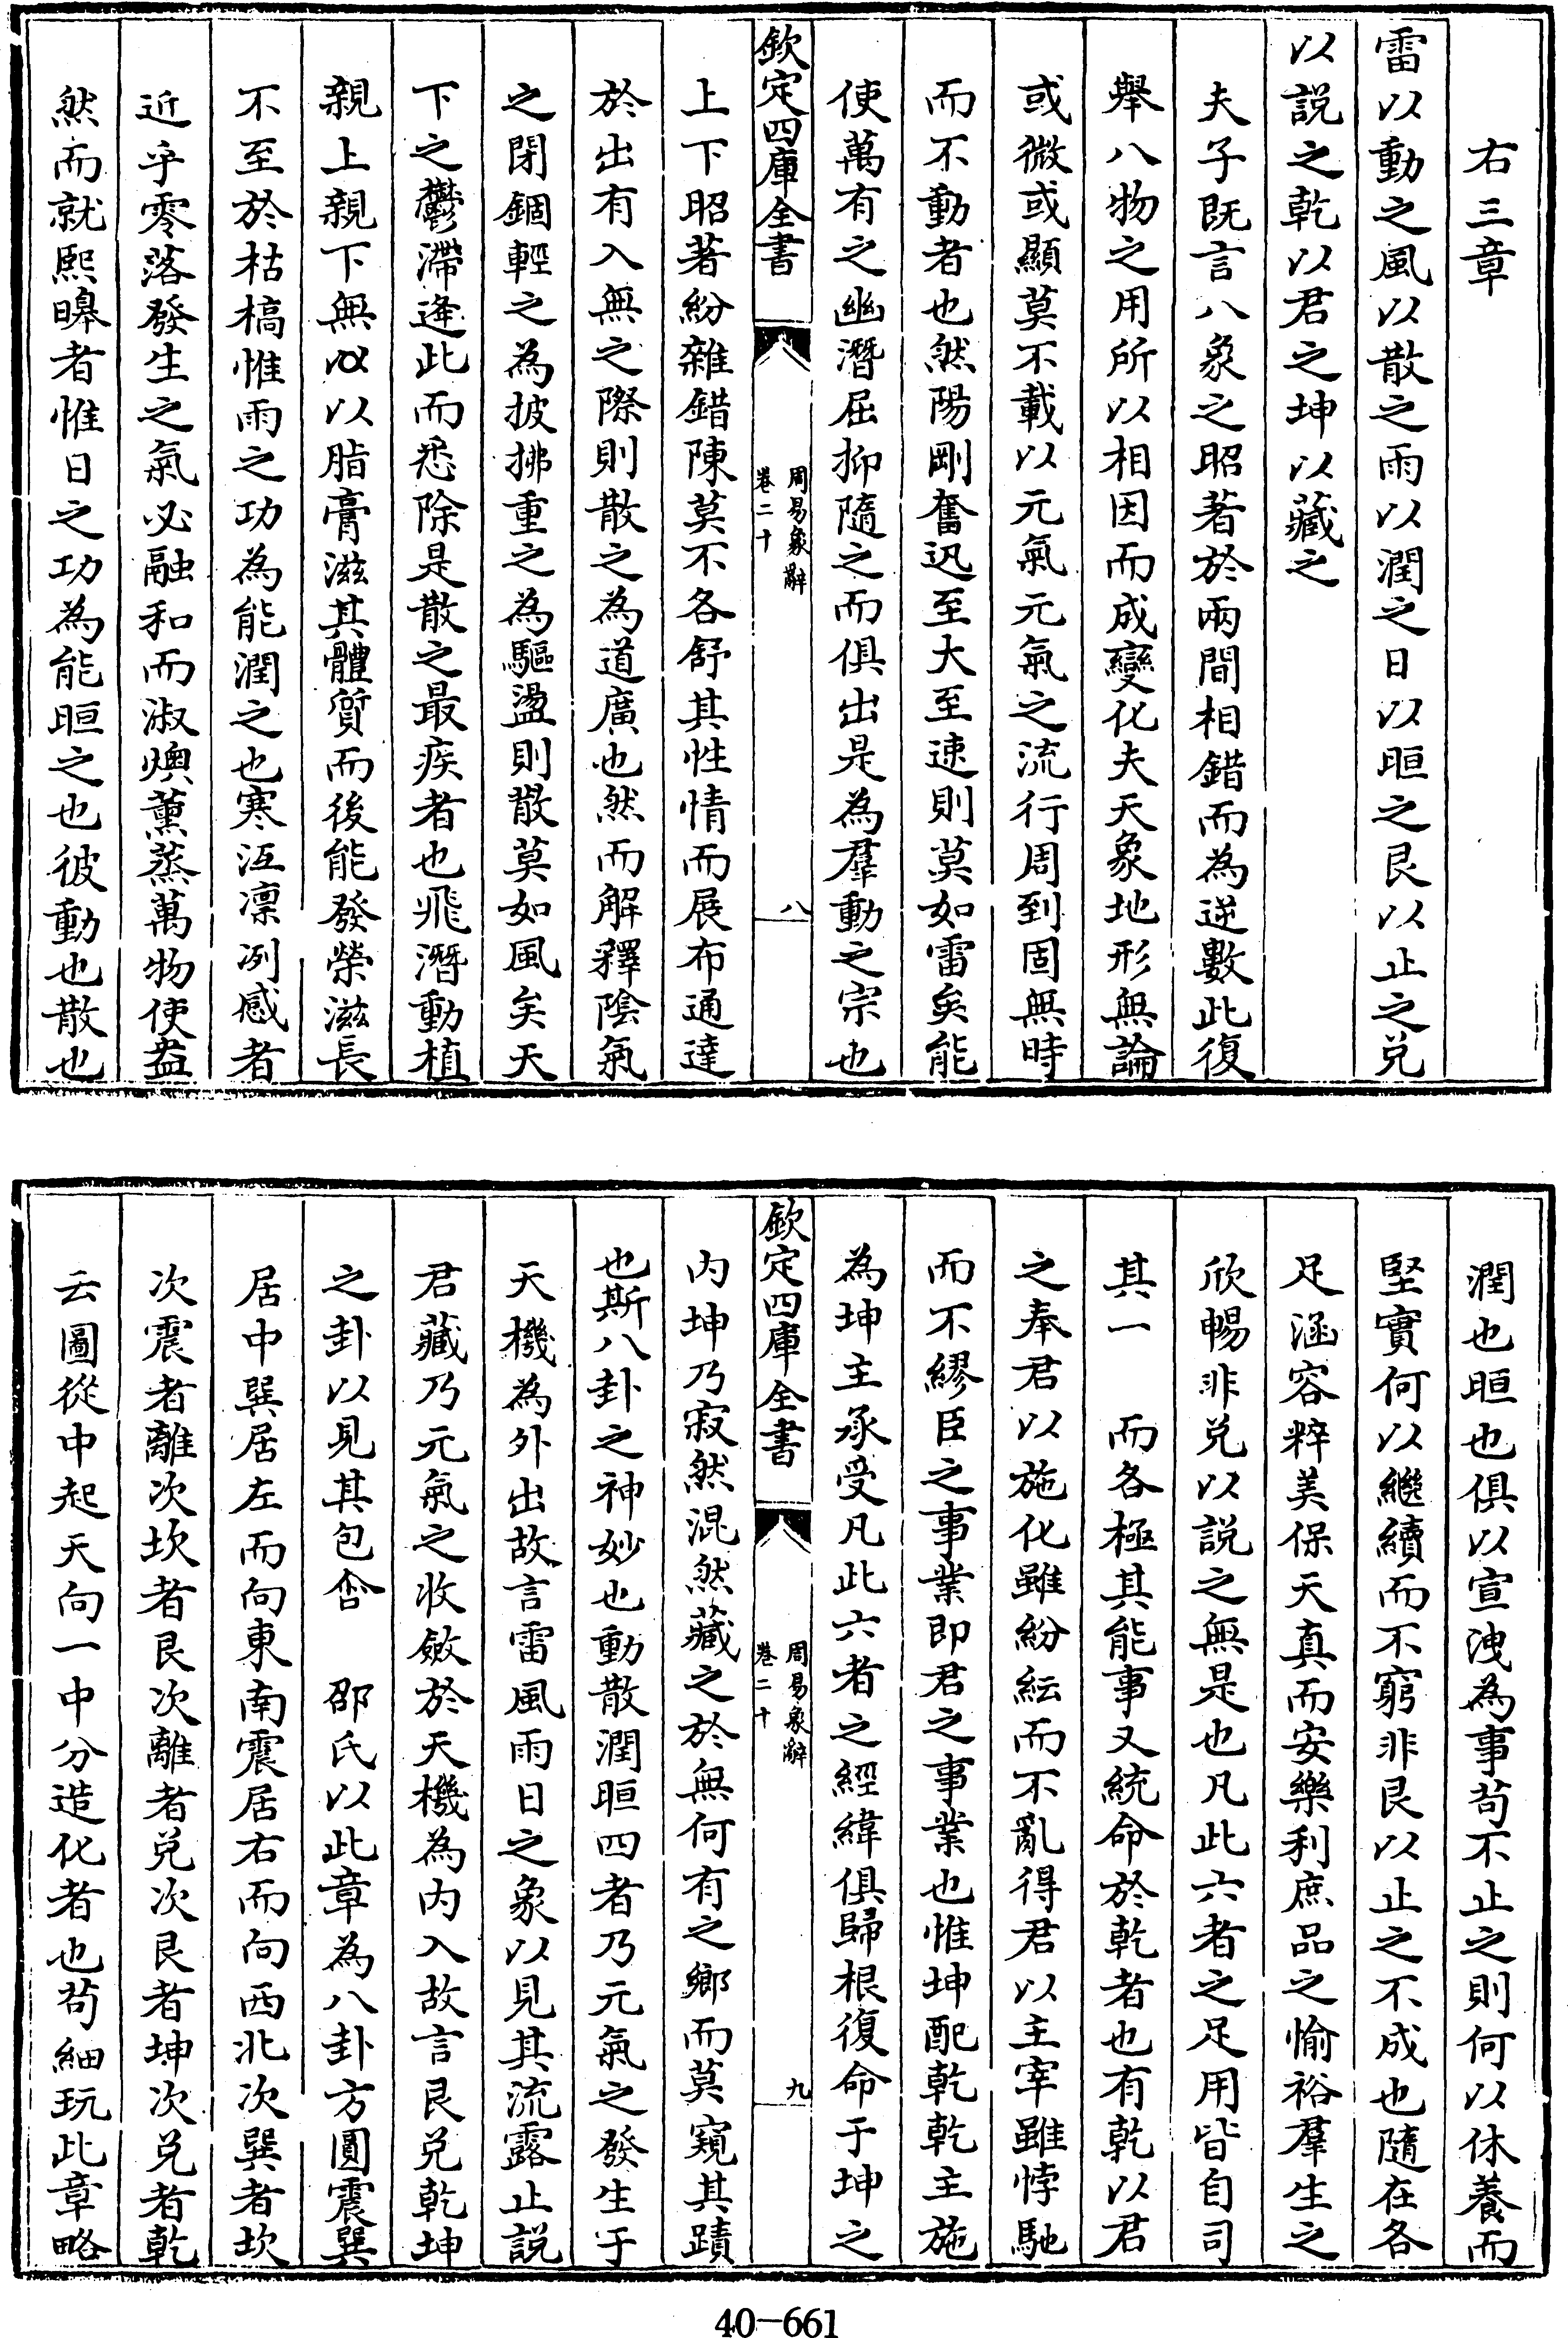 右三章
雷以動之風以散之雨以潤之日以晅之艮以止之兌
以説之乾以君之坤以藏之
夫子既言八象之昭著於兩間相錯而為逆數此復
舉八物之用所以相因而成變化夫天象地形無論
或微或顯莫不載以元氣元氣之流行周到固無時
而不動者也然陽剛奮迅至大至速則莫如雷矣能
使萬有之幽潛屈抑隨之而俱出是為羣動之宗也
欽定四庫全書
周易象辭
卷二十
八
上下昭著紛雜錯陳莫不各舒其性情而展布通達
於出有入無之際則散之為道廣也然而解釋陰氣
之閉錮輕之為披拂重之為驅盪則散莫如風矣天
下之鬱滯逢此而悉除是散之最疾者也飛潛動植
親上親下無以脂膏滋其體質而後能發榮滋長
不至於枯槁惟雨之功為能潤之也寒沍凜冽感者
近乎零落發生之氣必融和而淑燠薰蒸萬物使盎
然而就熙皞者惟日之功為能晅之也彼動也散也
潤也晅也俱以宣洩為事苟不止之則何以休養而
堅實何以繼續而不窮非艮以止之不成也隨在各
足涵容粹美保天真而安樂利庶品之愉裕羣生之
欣暢非兌以説之無是也凡此六者之足用皆自司
其一 而各極其能事又統命於乾者也有乾以君
之奉君以施化雖紛紜而不亂得君以主宰雖悖馳
而不繆臣之事業即君之事業也惟坤配乾乾主施
為坤主承受凡此六者之經緯俱歸根復命于坤之
欽定四庫全書
周易象辭
卷二十
九
内坤乃寂然混然藏之於無何有之鄉而莫窺其蹟
也斯八卦之神妙也動散潤晅四者乃元氣之發生于
天機為外出故言雷風雨日之象以見其流露止説
君藏乃元氣之收斂於天機為内入故言艮兌乾坤
之卦以見其包含 邵氏以此章為八卦方圓震巽
居中巽居左而向東南震居右而向西北次巽者坎
次震者離次坎者艮次離者兌次艮者坤次兌者乾
云圖從中起天向一中分造化者也苟細玩此章略
40-661